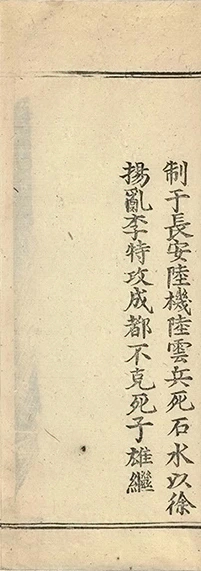 制于長安陸機陸雲兵死石水以徐
揚亂李特攻成都不克死子雄繼